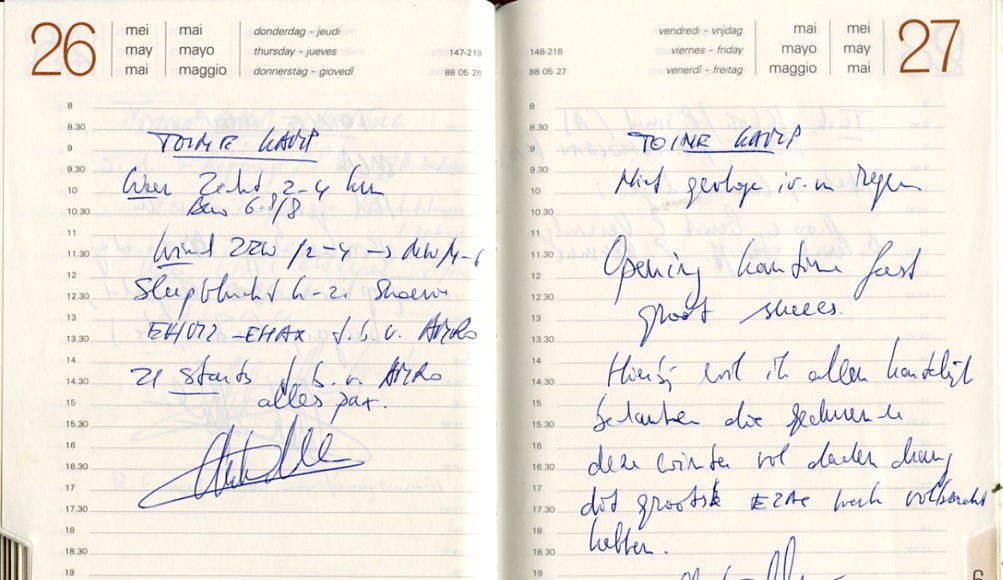 26
mei mai
may mayo
mai maggio
donderdag - jeudi
thursday - jueves
donnerstag - giovedi
147-219
88 05 26
8
8.30
9
9.30
10
10.30
11
11.30
12
12.30
13
13.30
14
14.30
15
15.30
16
16.30
17
17.30
18
18.30
19
TOINE KAMP
Weer Zicht 2-4 km
6.8/8
Wind ZZW /2-4 ->
Sleepvlucht
- EHAX t.b.v. AMRO
21 starts t.b.v. AMRO
alles pax.
27
vendredi - vrijdag
viernes - friday
venerdi - freitag
mai mei
mayo may
maggio mai
148-218
88 05 27
8
8.30
9
9.30
10
10.30
11
11.30
12
12.30
13
13.30
14
14.30
15
15.30
16
16.30
17
17.30
18
18.30
19
TOINE KAMP
Niet gevlogen i.v.m regen
Opening kantine feest
groot succes.
Hierbij wil ik allen hartelijk
bedanken die gedurende
deze winter vol dadendrang
dit grootste EZAC werk volbracht
hebben.
6